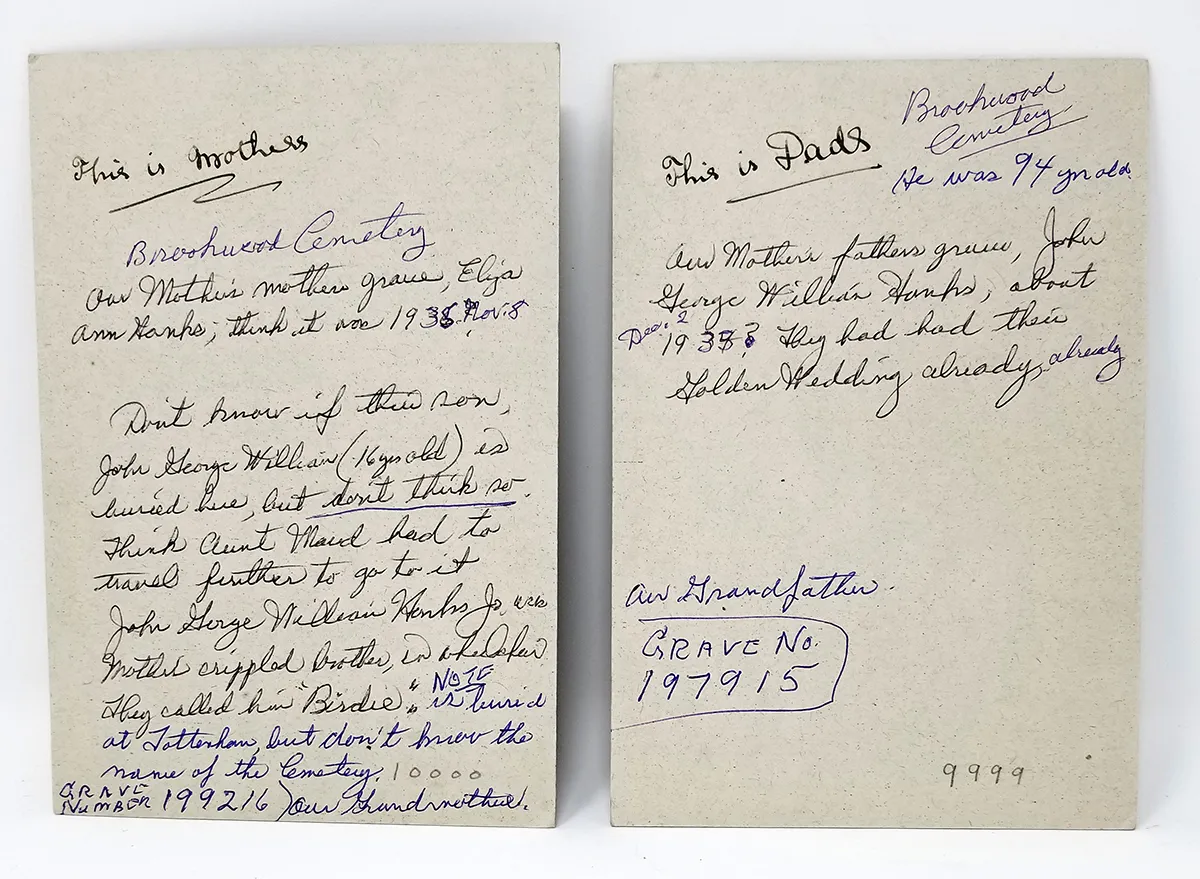 This is Mothers
Brookwood Cemetery
Our Mother's mothers grave, Eliza
Ann Hanks; think it was 1938 Nov. 8
Don't know if their son,
John George William (16 yrs old) is
buried here, but don't think so.
Think Aunt Maud had to
travel further to go to it
John George William Hanks Jr. was
Mother crippled brother, in wheelchair
They called him "Birdie" NOTE
is buried
at Tottenham, but don't know the
name of the Cemetery. 10000
GRAVE
NUMBER 199216) our Grandmother.
Brookwood
Cemetery
This is Dads
He was 94 yrs old.
Our Mother's fathers grave, John
George William Hanks, about
Dec. 2
19 They had had their
Golden Wedding already, already
Our Grandfather.
GRAVE No.
197915
9999